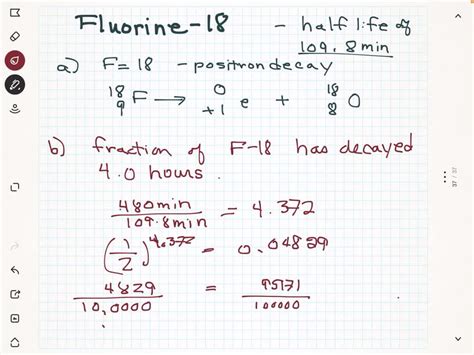 Fluorine-18 - half life of
109.8 min
a) F=18 - positron decay
18 9 F → 0 +1 e + 18 8 O
b) fraction of F-18 has decayed
4.0 hours.
480min / 109.8min = 4.372
(1/2)^4.372 = 0.04829
4829 / 10,0000 = 95171 / 100000
37 / 37